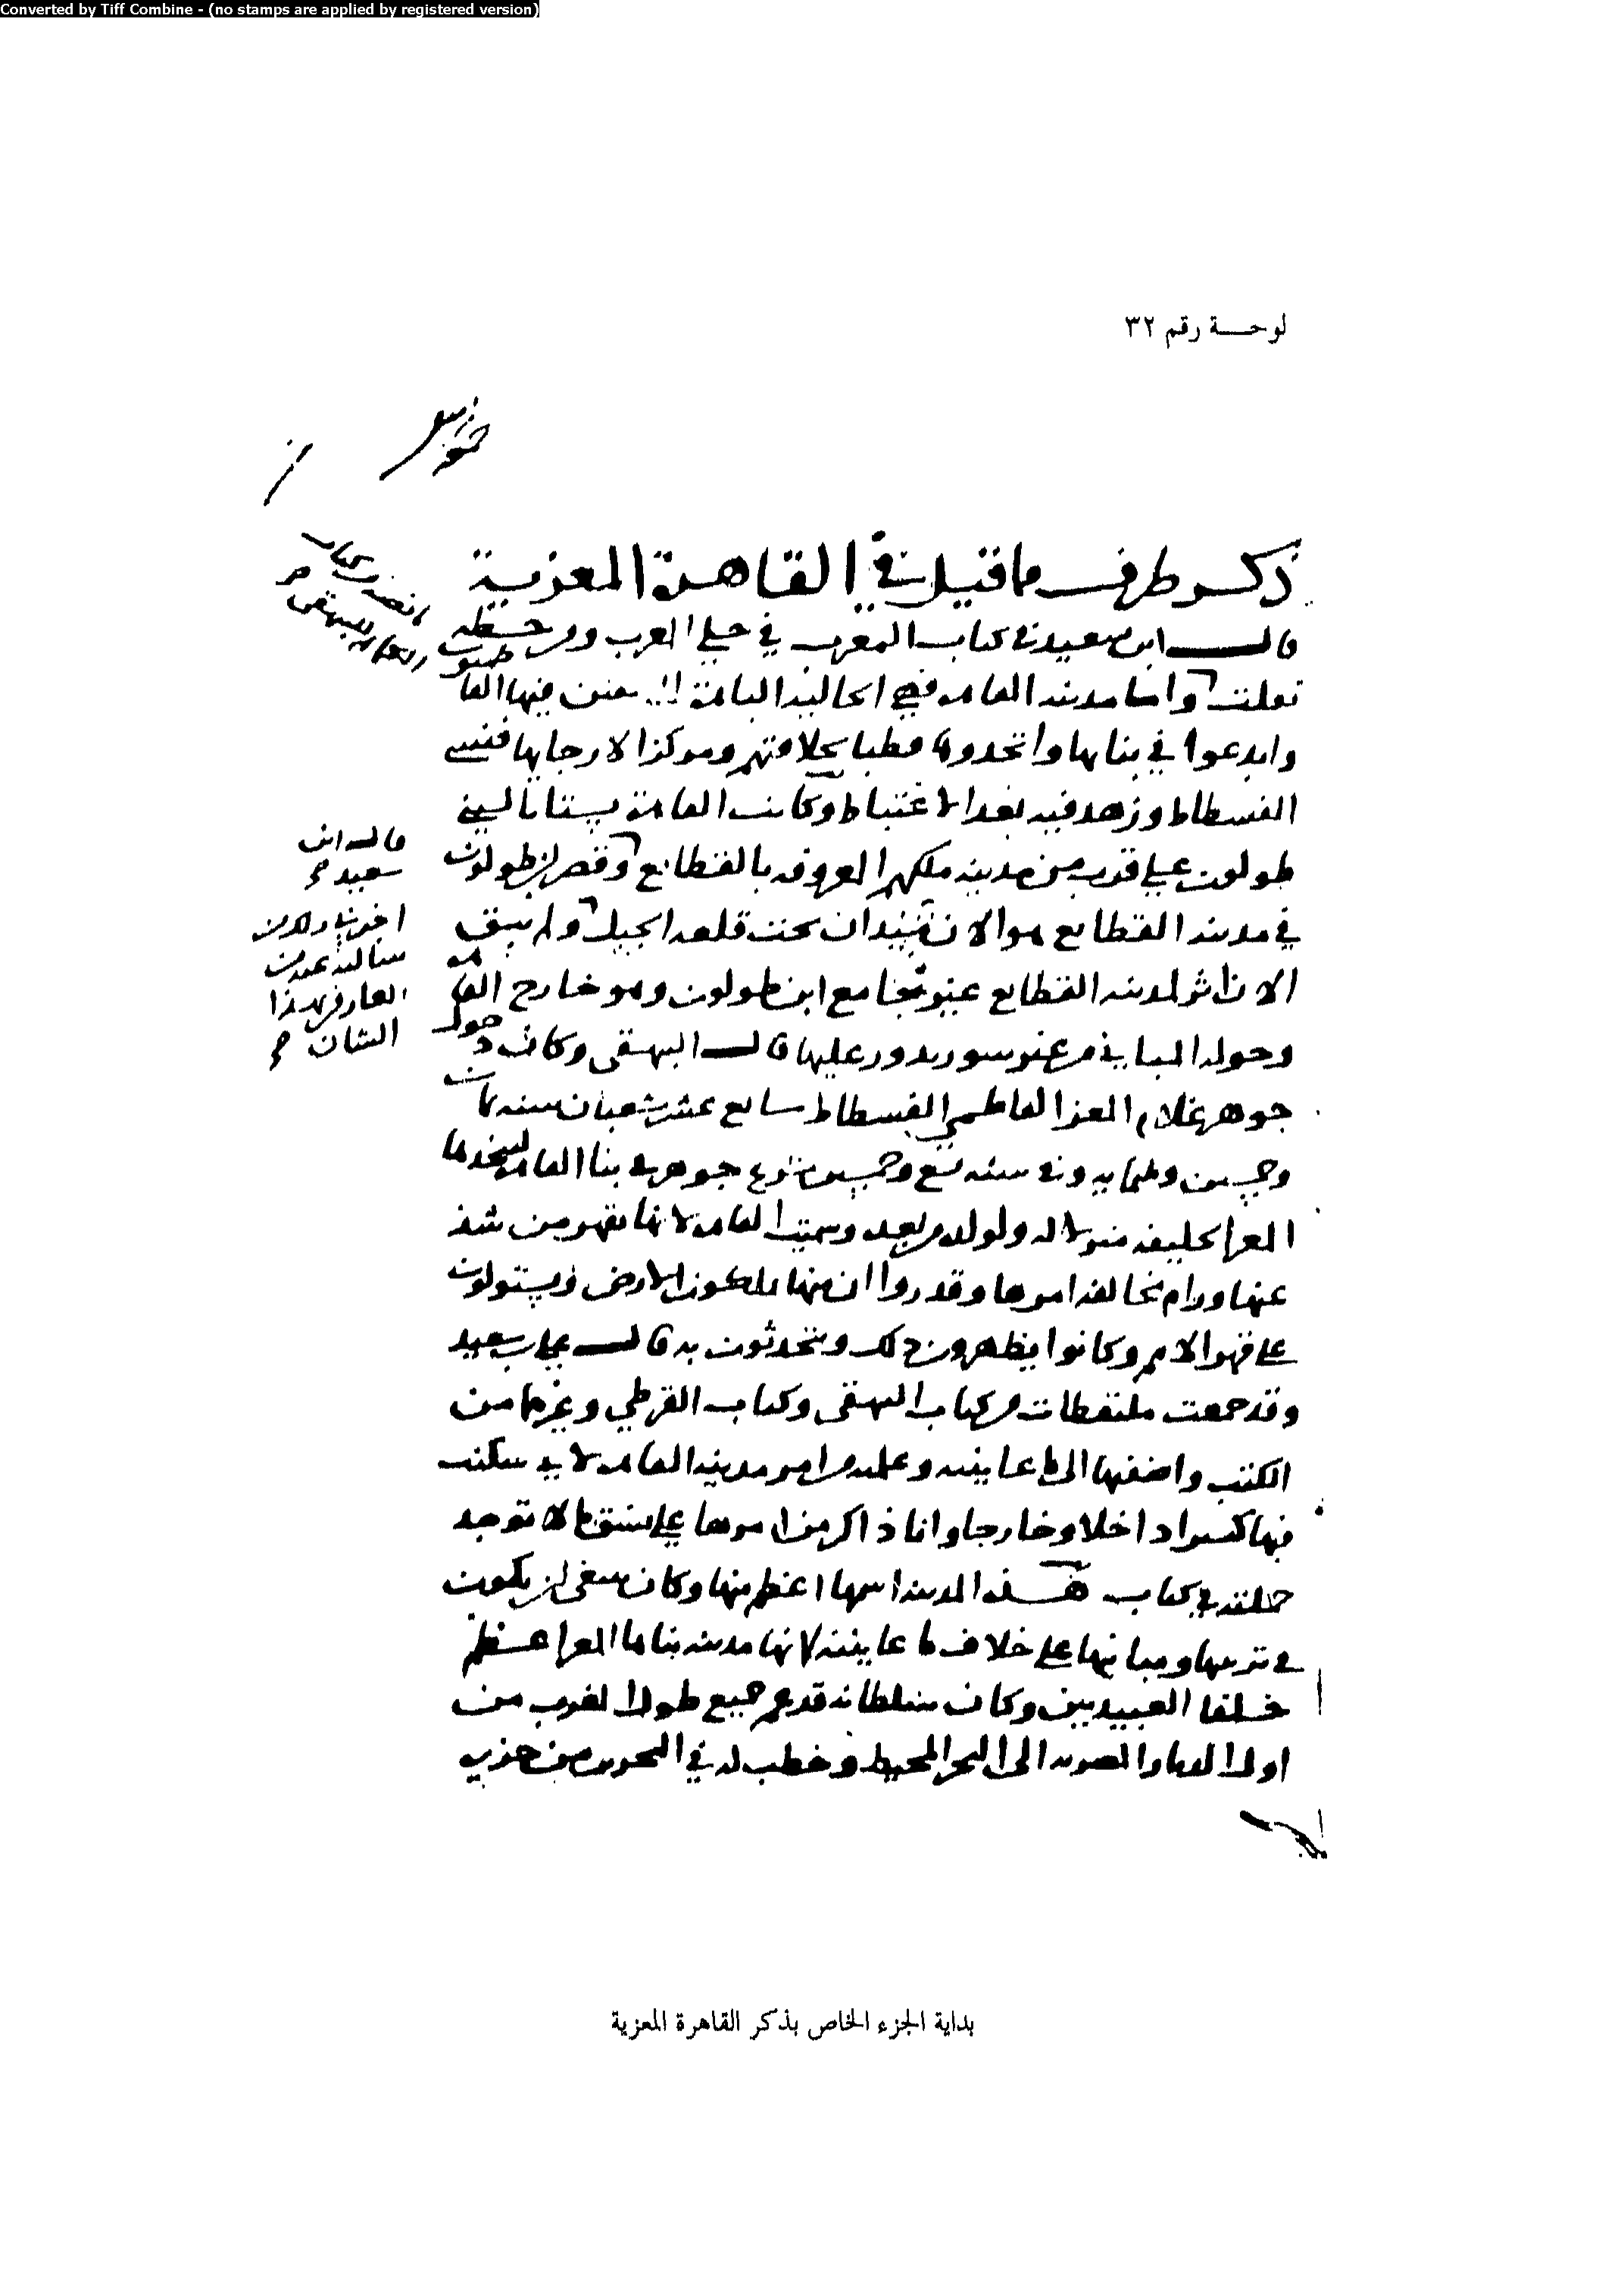 Converted by Tiff Combine - (no stamps are applied by registered version)
لوحة رقم ٣٢
ذكر طرف ما قيل في القاهرة المعزية
قال ابن سعيد في كتاب المغرب في حلى المغرب ومن خطه
نقلت واما مدينة القاهرة فهي الحالية الباهرة التي تفنن فيها الفا
وابدعوا في بنايها واتخدوها قطبا لخلافتهم ومركزا لارجايها فنسي
الفسطاط وزهد فيه بعد الاغتباط وكانت القاهرة بستانا لبني
طولون على قرب من مدينة ملكهم المعروفة بالقطايع وقصر ابن طولون
في مدينة القطايع هو الان تحت قلعة الجبل ولم يبق
الان اثر لمدينة القطايع غير جامع ابن طولون وهو خارج القاهرة
وحوله المباني من غير سور يدور عليها قال البيهقي وكان دخول
جوهر غلام المعز الفاطمي الفسطاط سابع عشر شعبان سنة ثمان
وخمسين وثلثماية وفي سنة تسع وخمسين شرع جوهر في بنا القاهرة ليتخدها
المعز الخليفة منزلا له ولولده من بعده وسميت القاهرة لانها تقهر من شذ
عنها ورام مخالفة امرها وقدروا ان منها يملكون الارض ويستولون
على قهر الامم وكانوا يظهرون ذلك ويتحدثون به قال علي بن سعيد
وقد جمعت ملتقطات من كتاب البيهقي وكتاب القرطبي وغيرهما من
الكتب واضفتها الى ما عاينته وعلمته من امر مدينة القاهرة لاني سكنت
فيها كثيرا داخلا وخارجا وانا ذاكر من امورها على نسق ما لا توجد
جملته في كتاب هذه المدينة اسمها اعظم منها وكان ينبغي ان يكون
في ترتيبها ومبانيها على خلاف ما عاينته لانها مدينة بناها المعز اعظم
خلفا العبيديين وكان سلطانه قد عم جميع طول المغرب من
اول الديار المصرية الى البحر المحيط وخطب له في البحرين من جزيرة
قال ابن
سعيد
اخبرني والدي
العارف بهذا
الشان
بداية الجزء الخاص بذكر القاهرة المعزية